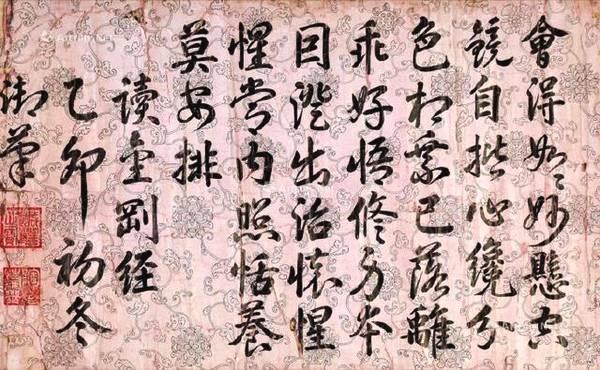 會得如〻妙懸空
鏡自揩心纔分
色相業已落離
乖好悟修身本
囙證出治懷惺
惺常內照恬養
莫安排
讀金剛經
乙卯初冬
御筆